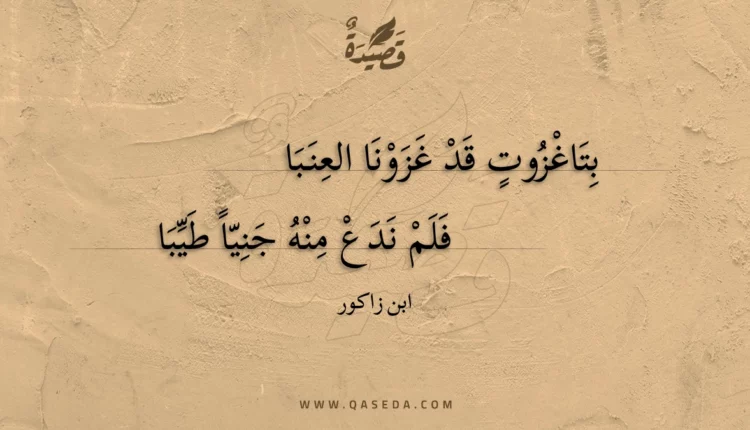 قَصِيْدَةٌ
بِتَاغْزُوتٍ قَدْ غَزَوْنَا العِنَبَا
فَلَمْ نَدَعْ مِنْهُ جَنِيّاً طَيِّبَا
ابن زاكور
WWW.QASEDA.COM